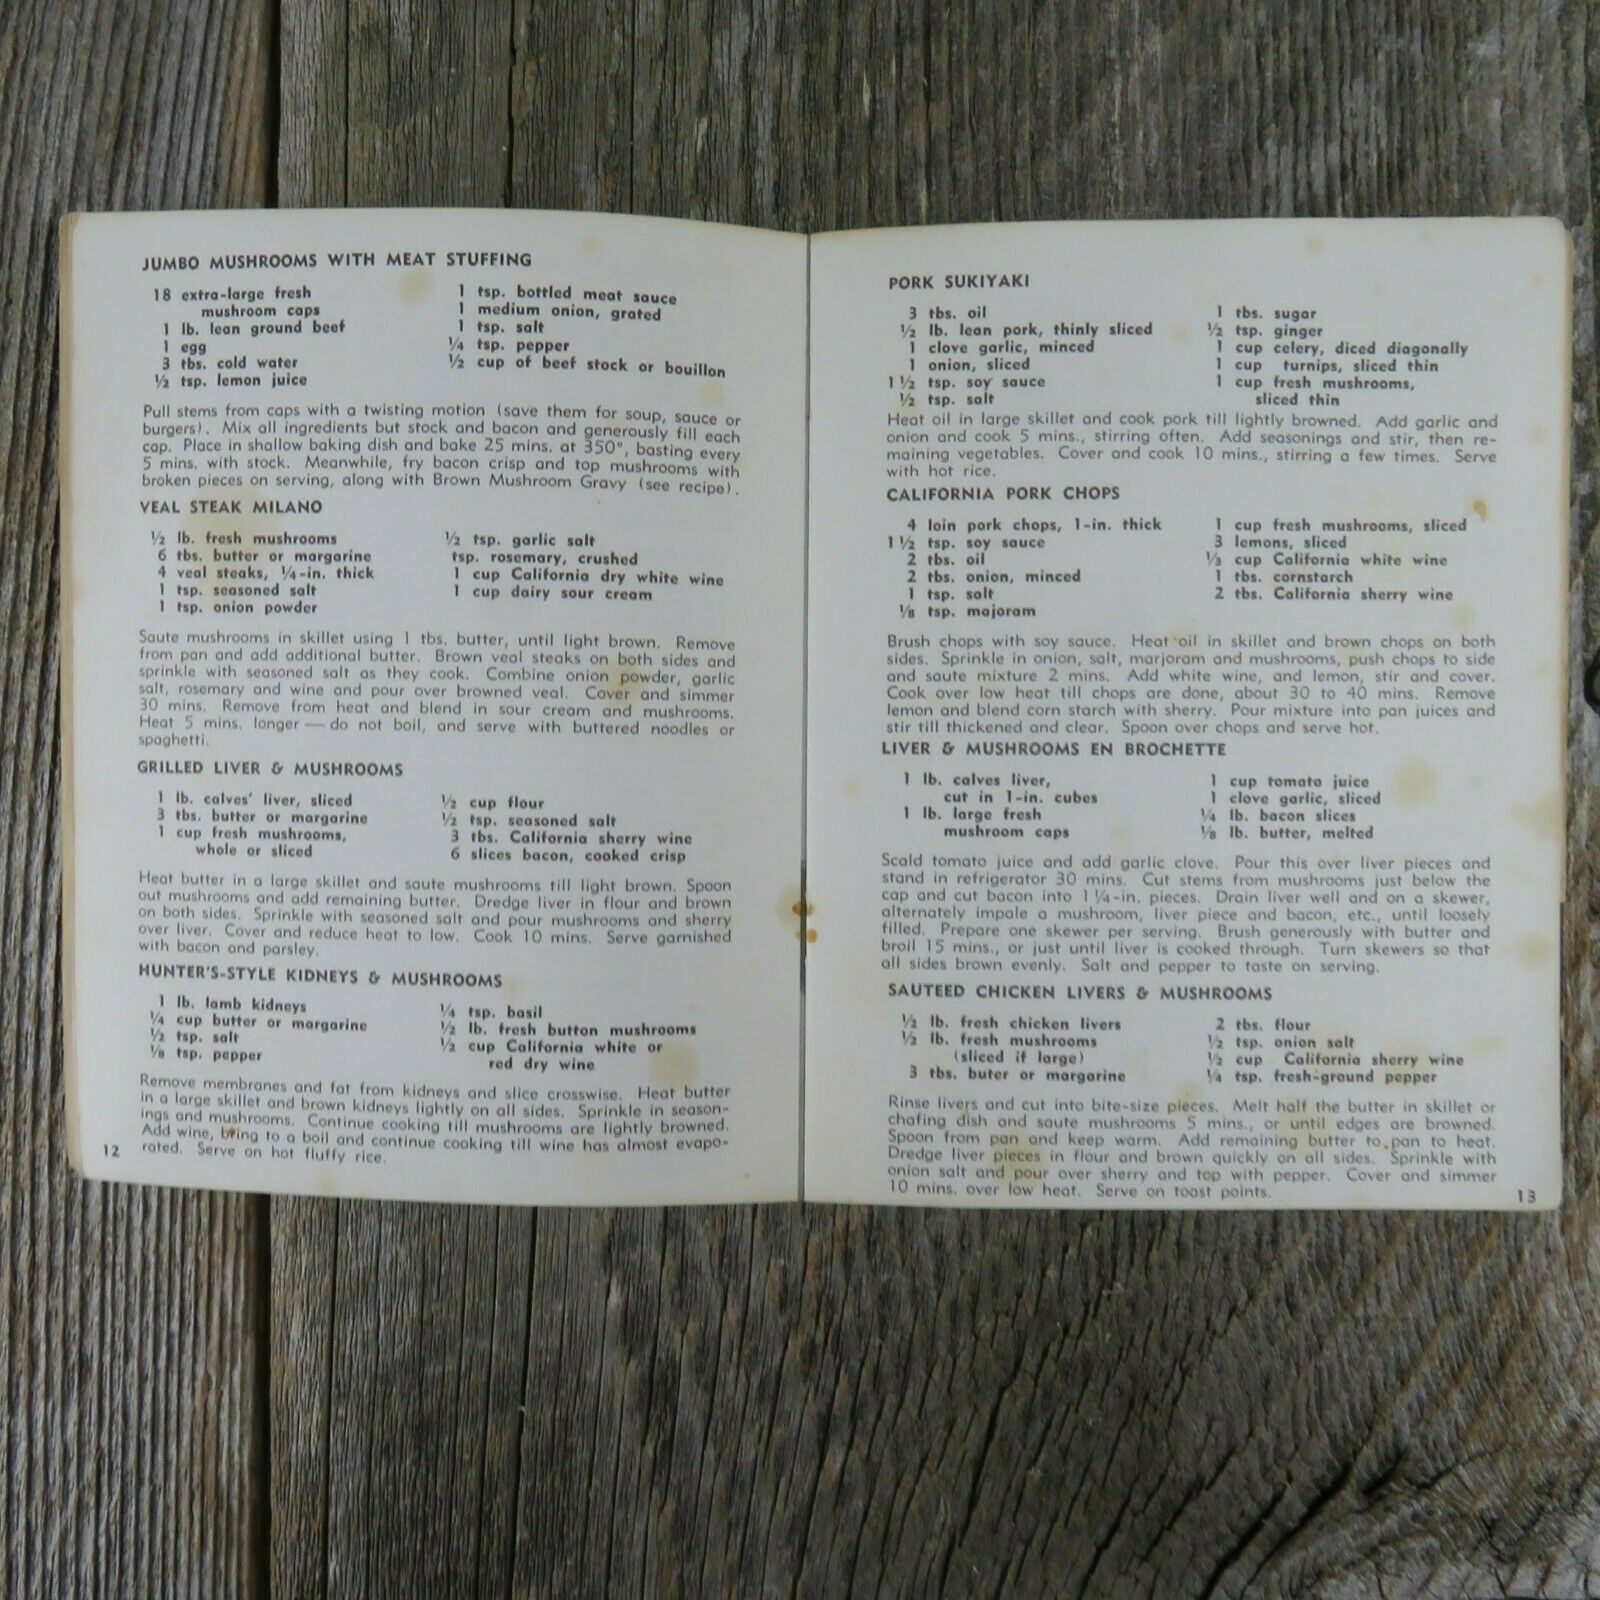 JUMBO MUSHROOMS WITH MEAT STUFFING
18 extra-large fresh
mushroom caps
1 lb. lean ground beef
1 egg
3 tbs. cold water
½ tsp. lemon juice
1 tsp. bottled meat sauce
1 medium onion, grated
1 tsp. salt
¼ tsp. pepper
½ cup of beef stock or bouillon
Pull stems from caps with a twisting motion (save them for soup, sauce or
burgers). Mix all ingredients but stock and bacon and generously fill each
cap. Place in shallow baking dish and bake 25 mins. at 350°, basting every
5 mins. with stock. Meanwhile, fry bacon crisp and top mushrooms with
broken pieces on serving, along with Brown Mushroom Gravy (see recipe).
VEAL STEAK MILANO
½ lb. fresh mushrooms
6 tbs. butter or margarine
4 veal steaks, ¼-in. thick
1 tsp. seasoned salt
1 tsp. onion powder
½ tsp. garlic salt
tsp. rosemary, crushed
1 cup California dry white wine
1 cup dairy sour cream
Saute mushrooms in skillet using 1 tbs. butter, until light brown. Remove
from pan and add additional butter. Brown veal steaks on both sides and
sprinkle with seasoned salt as they cook. Combine onion powder, garlic
salt, rosemary and wine and pour over browned veal. Cover and simmer
30 mins. Remove from heat and blend in sour cream and mushrooms.
Heat 5 mins. longer — do not boil, and serve with buttered noodles or
spaghetti.
GRILLED LIVER & MUSHROOMS
1 lb. calves' liver, sliced
3 tbs. butter or margarine
1 cup fresh mushrooms,
whole or sliced
½ cup flour
½ tsp. seasoned salt
3 tbs. California sherry wine
6 slices bacon, cooked crisp
Heat butter in a large skillet and saute mushrooms till light brown. Spoon
out mushrooms and add remaining butter. Dredge liver in flour and brown
on both sides. Sprinkle with seasoned salt and pour mushrooms and sherry
over liver. Cover and reduce heat to low. Cook 10 mins. Serve garnished
with bacon and parsley.
HUNTER'S-STYLE KIDNEYS & MUSHROOMS
1 lb. lamb kidneys
¼ cup butter or margarine
½ tsp. salt
⅛ tsp. pepper
¼ tsp. basil
½ lb. fresh button mushrooms
½ cup California white or
red dry wine
Remove membranes and fat from kidneys and slice crosswise. Heat butter
in a large skillet and brown kidneys lightly on all sides. Sprinkle in season-
ings and mushrooms. Continue cooking till mushrooms are lightly browned.
Add wine, bring to a boil and continue cooking till wine has almost evapo-
rated. Serve on hot fluffy rice.
12
PORK SUKIYAKI
3 tbs. oil
½ lb. lean pork, thinly sliced
1 clove garlic, minced
1 onion, sliced
1½ tsp. soy sauce
½ tsp. salt
1 tbs. sugar
½ tsp. ginger
1 cup celery, diced diagonally
1 cup turnips, sliced thin
1 cup fresh mushrooms,
sliced thin
Heat oil in large skillet and cook pork till lightly browned. Add garlic and
onion and cook 5 mins., stirring often. Add seasonings and stir, then re-
maining vegetables. Cover and cook 10 mins., stirring a few times. Serve
with hot rice.
CALIFORNIA PORK CHOPS
4 loin pork chops, 1-in. thick
1½ tsp. soy sauce
2 tbs. oil
2 tbs. onion, minced
1 tsp. salt
⅛ tsp. majoram
1 cup fresh mushrooms, sliced
3 lemons, sliced
⅓ cup California white wine
1 tbs. cornstarch
2 tbs. California sherry wine
Brush chops with soy sauce. Heat oil in skillet and brown chops on both
sides. Sprinkle in onion, salt, marjoram and mushrooms, push chops to side
and saute mixture 2 mins. Add white wine, and lemon, stir and cover.
Cook over low heat till chops are done, about 30 to 40 mins. Remove
lemon and blend corn starch with sherry. Pour mixture into pan juices and
stir till thickened and clear. Spoon over chops and serve hot.
LIVER & MUSHROOMS EN BROCHETTE
1 lb. calves liver,
cut in 1-in. cubes
1 lb. large fresh
mushroom caps
1 cup tomato juice
1 clove garlic, sliced
¼ lb. bacon slices
⅛ lb. butter, melted
Scald tomato juice and add garlic clove. Pour this over liver pieces and
stand in refrigerator 30 mins. Cut stems from mushrooms just below the
cap and cut bacon into 1¼-in. pieces. Drain liver well and on a skewer,
alternately impale a mushroom, liver piece and bacon, etc., until loosely
filled. Prepare one skewer per serving. Brush generously with butter and
broil 15 mins., or just until liver is cooked through. Turn skewers so that
all sides brown evenly. Salt and pepper to taste on serving.
SAUTEED CHICKEN LIVERS & MUSHROOMS
½ lb. fresh chicken livers
½ lb. fresh mushrooms
(sliced if large)
3 tbs. buter or margarine
2 tbs. flour
½ tsp. onion salt
½ cup California sherry wine
¼ tsp. fresh-ground pepper
Rinse livers and cut into bite-size pieces. Melt half the butter in skillet or
chafing dish and saute mushrooms 5 mins., or until edges are browned.
Spoon from pan and keep warm. Add remaining butter to pan to heat.
Dredge liver pieces in flour and brown quickly on all sides. Sprinkle with
onion salt and pour over sherry and top with pepper. Cover and simmer
10 mins. over low heat. Serve on toast points.
13